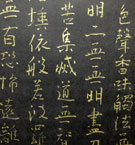 色聲香味觸法
明亦無無明盡
苦集滅道無
埵依般若波羅
無有恐怖遠離